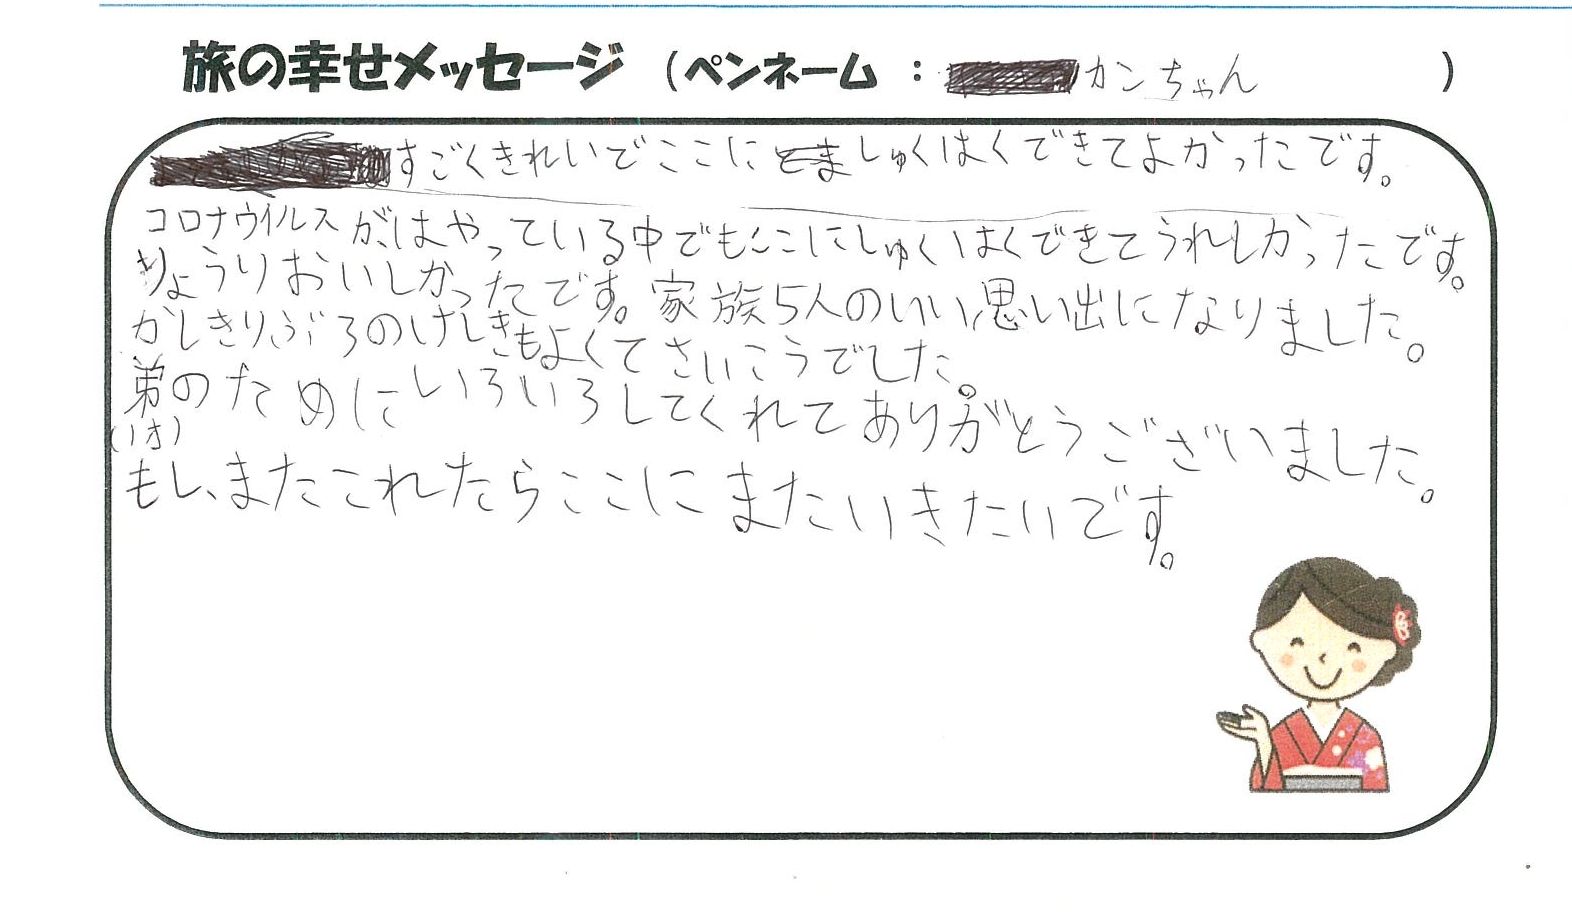 旅の幸せメッセージ (ペンネーム : カンちゃん )
すごくきれいでここに とま しゅくはくできてよかったです。
コロナウイルスが、はやっている中でもここにしゅくはくできてうれしかったです。
りょうりおいしかったです。家族5人のいい思い出になりました。
かしきりぶろのけしきもよくてさいこうでした。
弟のためにいろいろしてくれてありがとうございました。
(1才)
もし、またこれたらここにまたいきたいです。